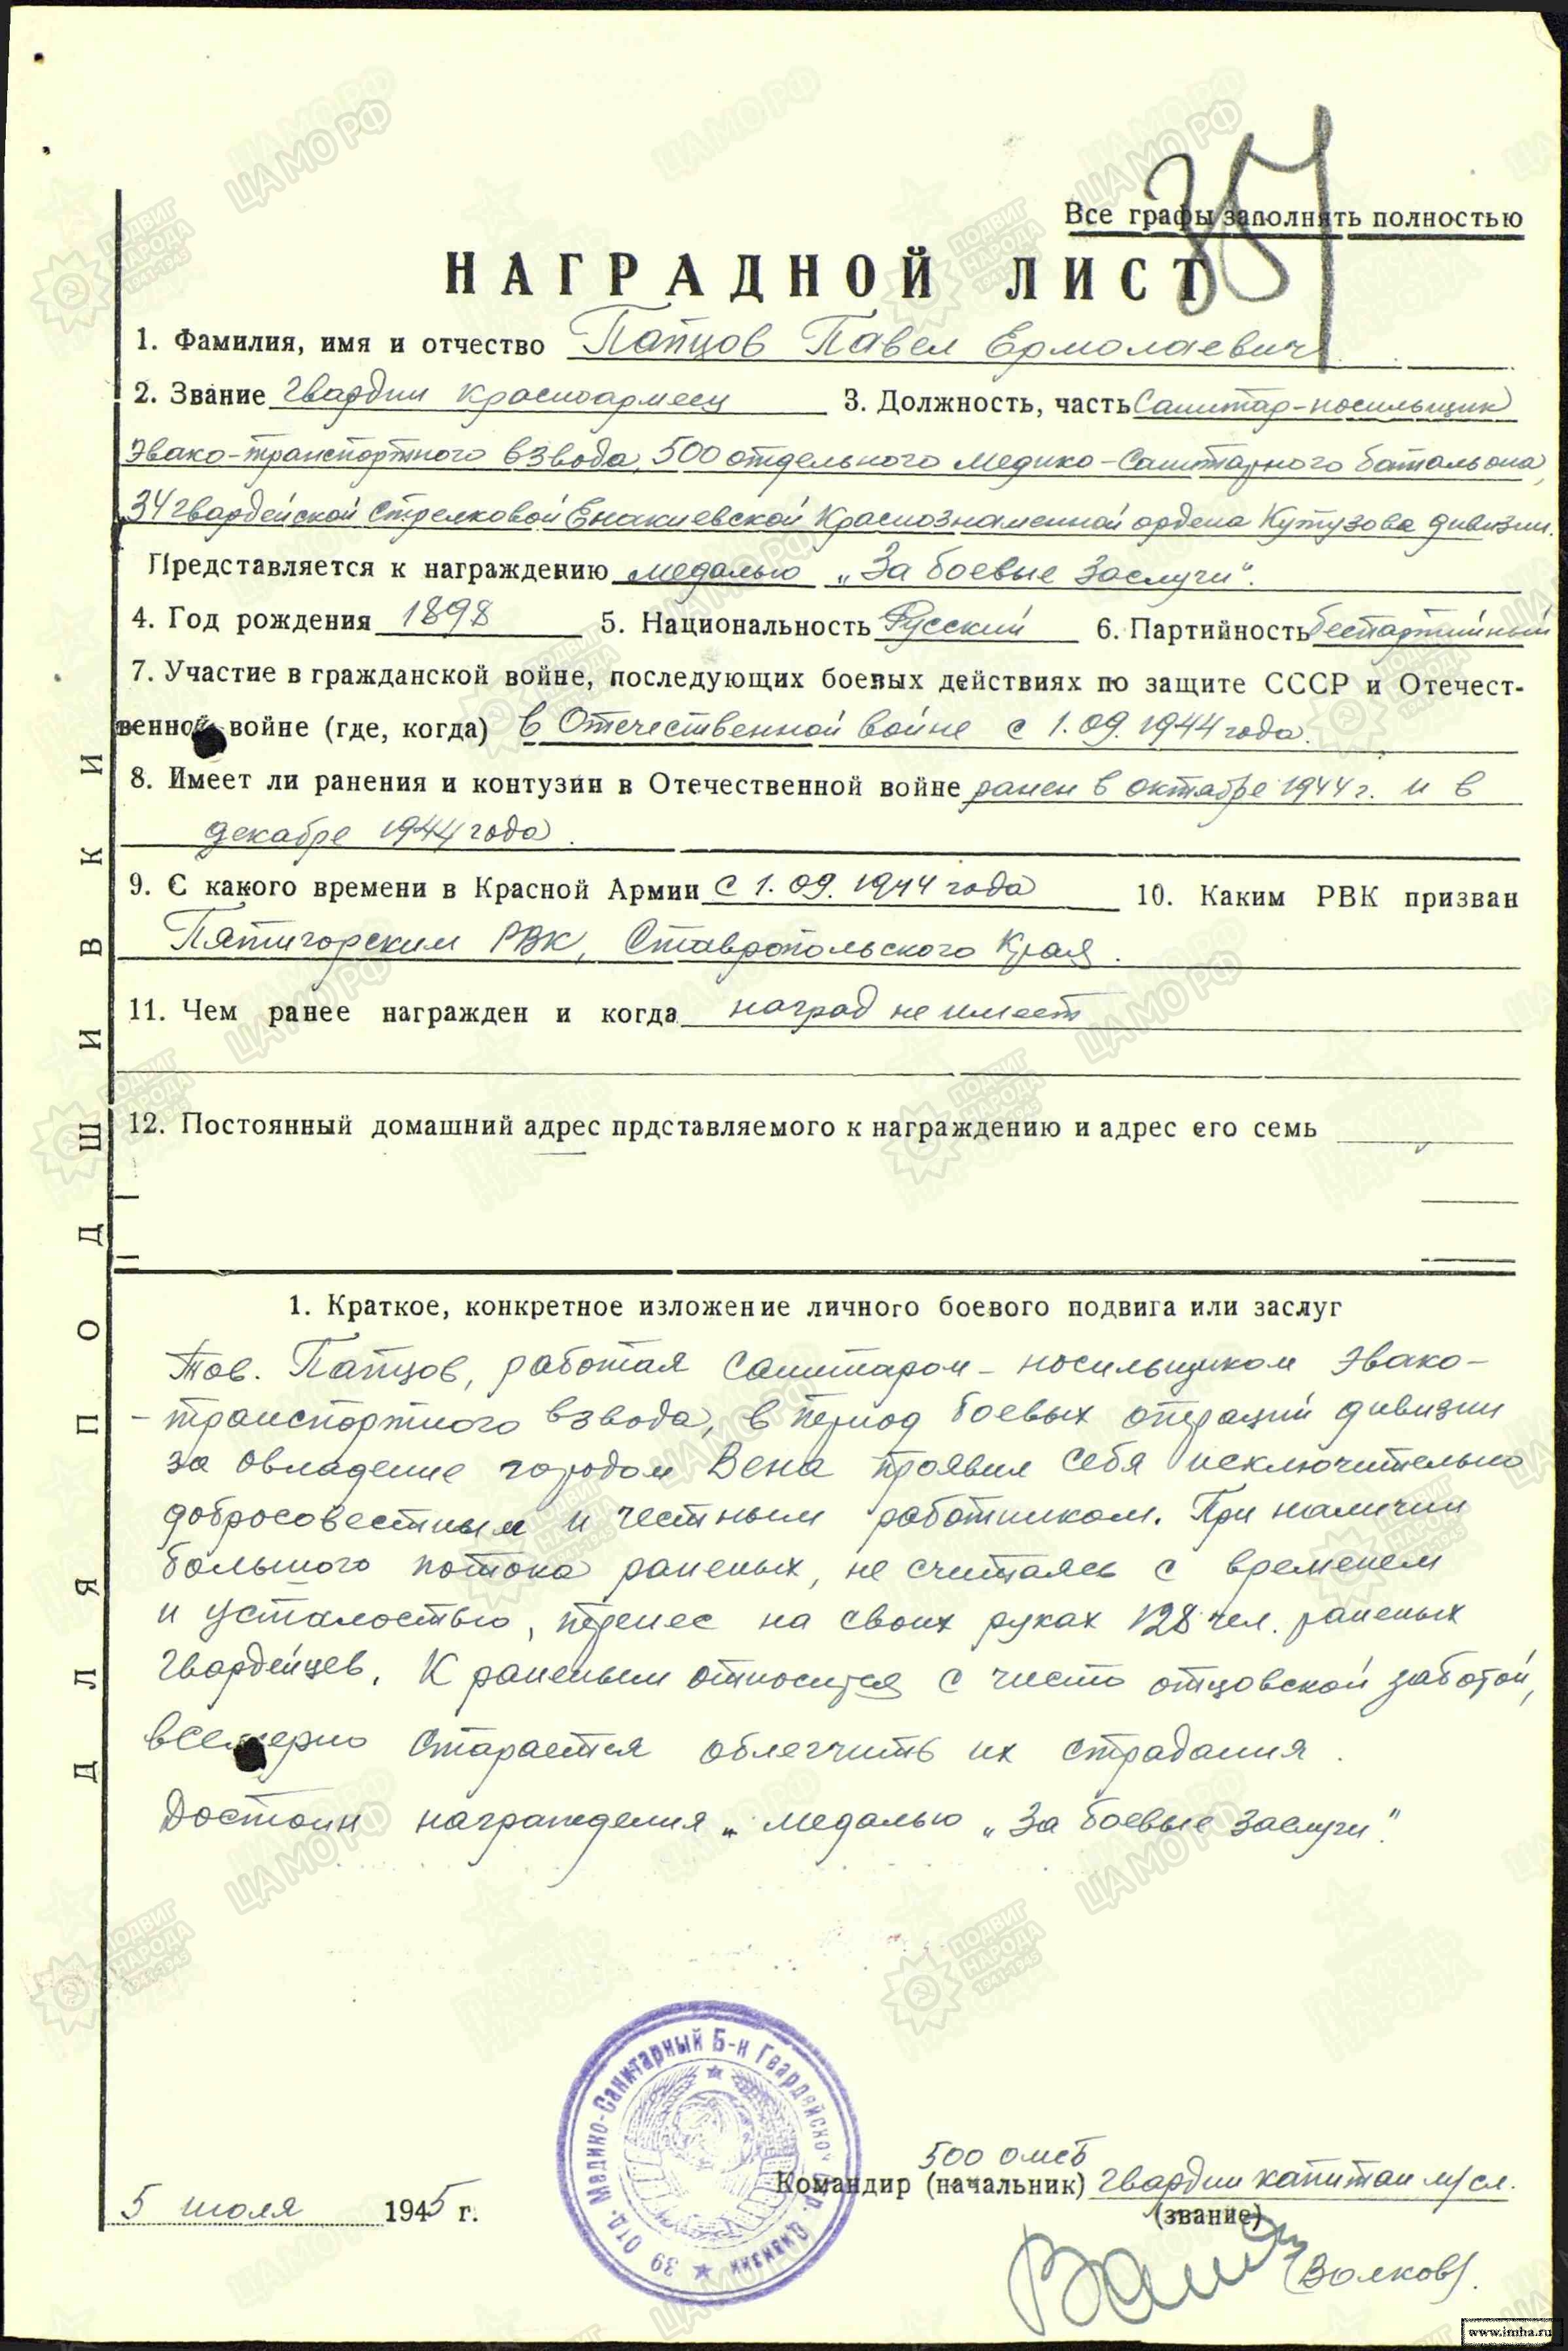 Все графы заполнять полностью
НАГРАДНОЙ ЛИСТ
1. Фамилия, имя и отчество Папцов Павел Ермолаевич
2. Звание гвардии красноармеец 3. Должность, часть Санитар-носильщик
Эвако-транспортного взвода, 500 отдельного Медико-Санитарного батальона,
34 гвардейской Стрелковой Енакиевской Краснознаменной ордена Кутузова дивизии.
Представляется к награждению медалью „За боевые заслуги".
4. Год рождения 1898 5. Национальность Русский 6. Партийность беспартийный
7. Участие в гражданской войне, последующих боевых действиях по защите СССР и Отечест-
венной войне (где, когда) в Отечественной войне с 1.09.1944 года.
8. Имеет ли ранения и контузии в Отечественной войне ранен в октябре 1944 г. и в
декабре 1944 года.
9. С какого времени в Красной Армии с 1.09.1944 года 10. Каким РВК призван
Пятигорским РВК, Ставропольского Края.
11. Чем ранее награжден и когда наград не имеет
12. Постоянный домашний адрес прдставляемого к награждению и адрес его семь
ДЛЯ ПОДШИВКИ
1. Краткое, конкретное изложение личного боевого подвига или заслуг
Тов. Папцов, работая санитаром-носильщиком Эвако-
-транспортного взвода, в период боевых операций дивизии
за овладение городом Вена проявил себя исключительно
добросовестным и честным работником. При наличии
большого потока раненых, не считаясь с временем
и усталостью, перенес на своих руках 128 чел. раненых
гвардейцев. К раненым относится с чисто отцовской заботой,
всемерно старается облегчить их страдания.
Достоин награждения „ медалью „За боевые заслуги".
39 Отд. Медико-Санитарный Б-н Гвардейской Стр. Дивизии
500 омсб
Командир (начальник) гвардии капитан м/сл.
(звание)
5 июля 1945 г.
(Волков).
ЦАМО РФ
ПОДВИГ НАРОДА 1941-1945
ПАМЯТЬ НАРОДА
www.imha.ru